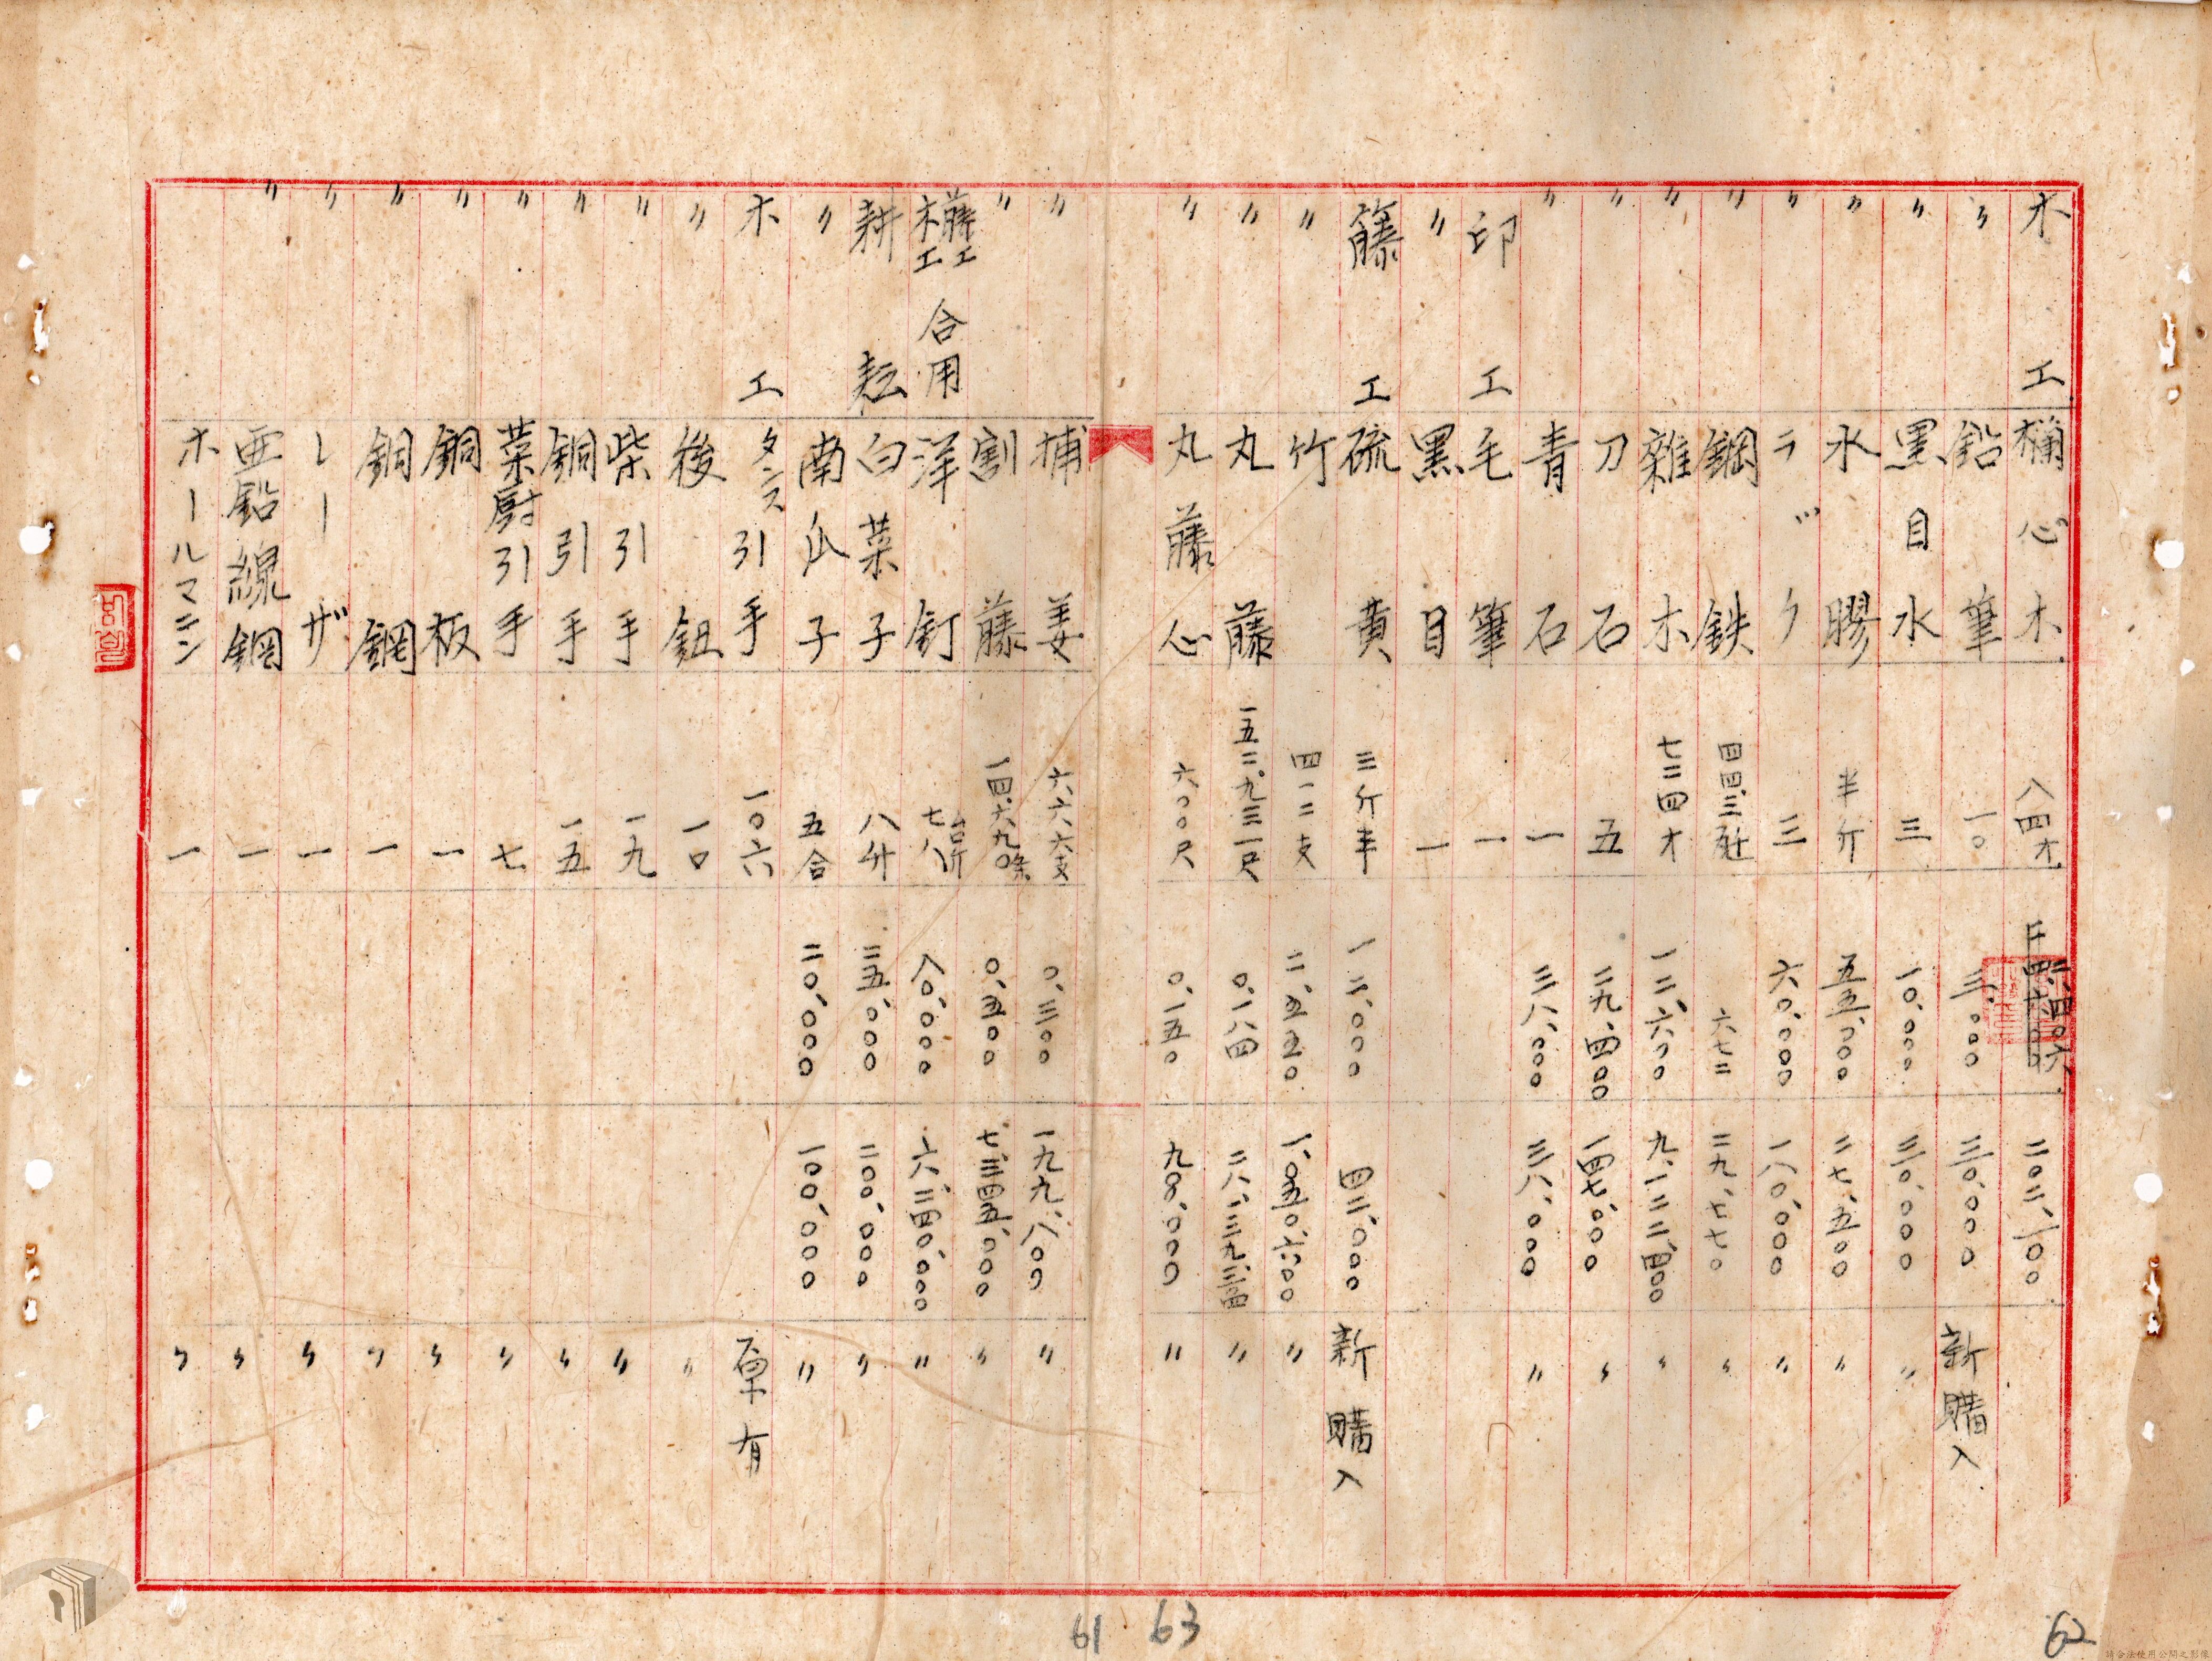 木工 桶心木 八四才 二〇二、一〇〇
〃 鉛筆 一〇 三、〇〇〇 三〇、〇〇〇 新購入
〃 黑目水 三 一〇、〇〇〇 三〇、〇〇〇 〃
〃 水膠 半斤 五五、〇〇〇 二七、五〇〇 〃
〃 ラック 三 六〇、〇〇〇 一八〇、〇〇〇 〃
〃 鋼鉄 四四、三 六七二 二九、七七〇 〃
〃 雜木 七二四才 一二、六〇〇 九、一二二、四〇〇 〃
〃 刀石 五 二九、四〇〇 一四七、〇〇〇 〃
〃 青石 一 三八、〇〇〇 三八、〇〇〇 〃
印工 毛筆 一
〃 黑目 一
籐工 硫黄 三斤半 一二、〇〇〇 四二、〇〇〇 新購入
〃 竹 四一二支 二、五五〇 一、〇五〇、六〇〇 〃
〃 丸藤 一五二、九三一尺 〇、一八四 〃
〃 丸藤心 六〇〇尺 〇、一五〇 九〇、〇〇〇 〃
〃 捕姜 六六六支 〇、三〇〇 一九九、八〇〇 〃
〃 割藤 一四、六九〇条 〇、五〇〇 七、三四五、〇〇〇 〃
藤工木工合用 洋釘 七八台斤 八〇、〇〇〇 六、二四〇、〇〇〇 〃
耕耘 白菜子 八升 二五、〇〇〇 二〇〇、〇〇〇 〃
〃 南瓜子 五合 二〇、〇〇〇 一〇〇、〇〇〇 〃
木工 タンス引手 一〇六 原有
〃 後鈕 一〇 〃
〃 柴引手 一九 〃
〃 銅引手 一五 〃
〃 菜厨引手 七 〃
〃 銅板 一 〃
〃 銅網 一 〃
〃 レーザ 一 〃
〃 亜鉛線網 一 〃
ホールマニン 一 〃
61 63
62
請合法使用公開之影像